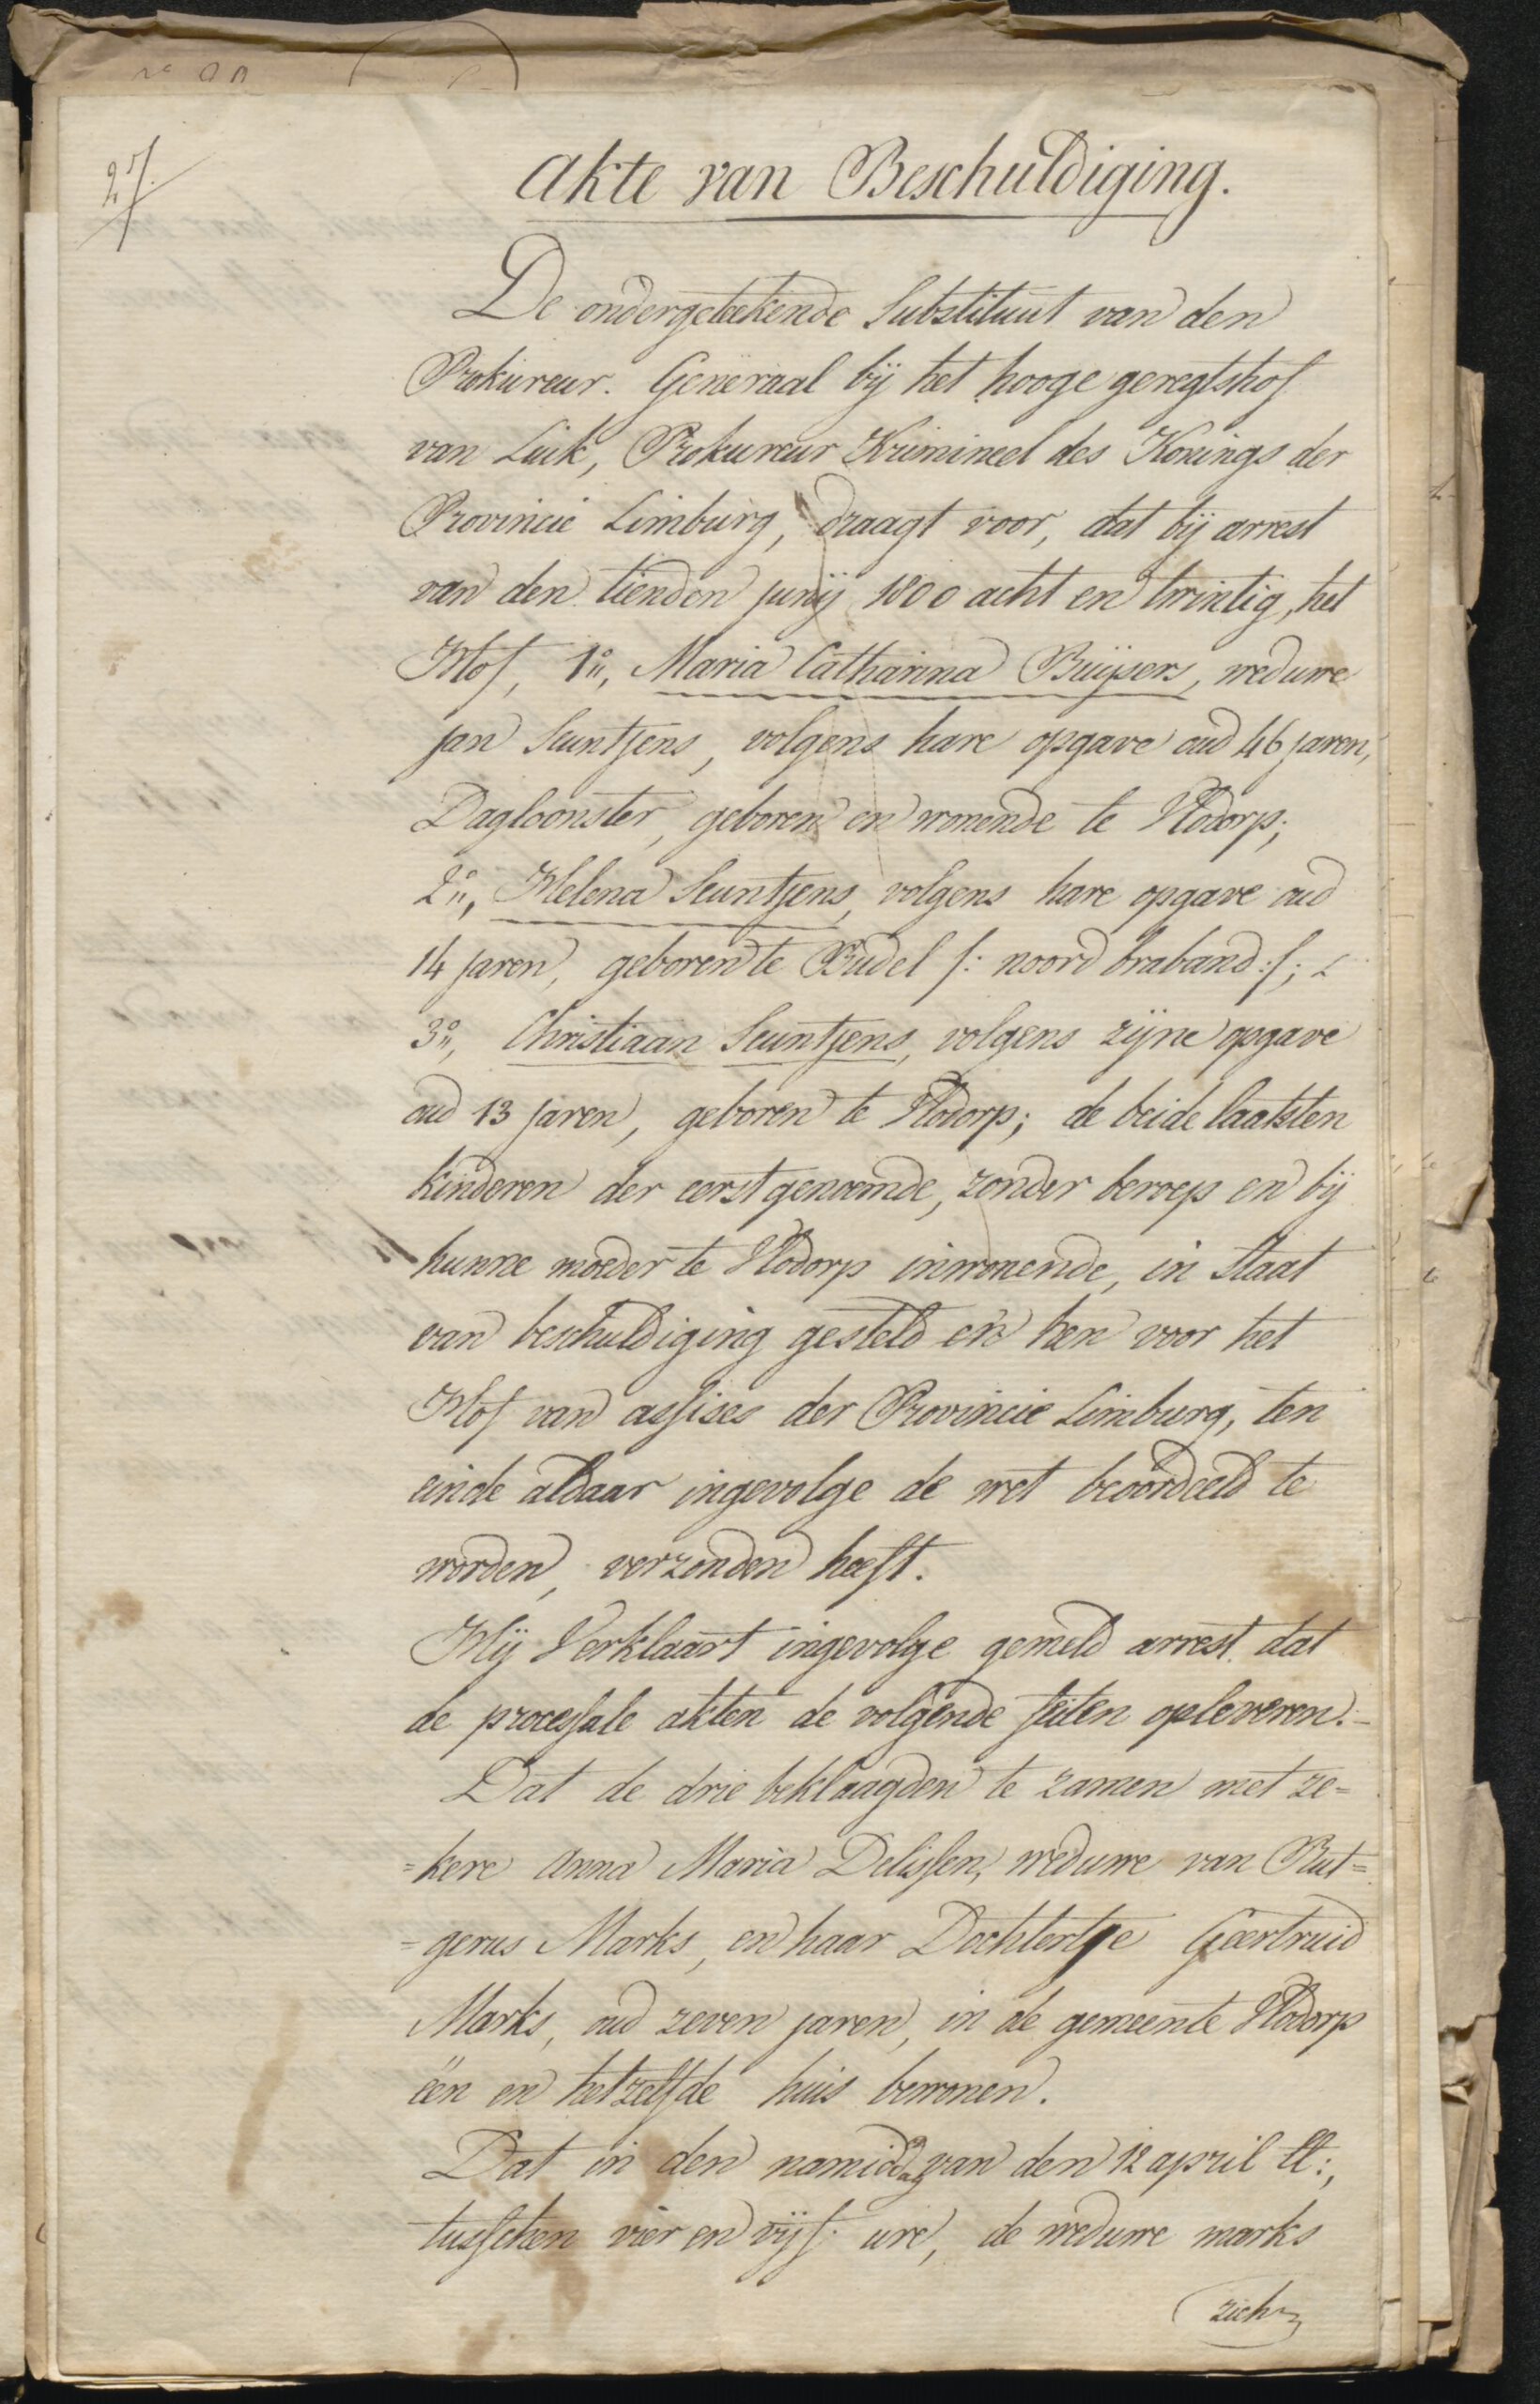 27.
Akte van Beschuldiging.
De ondergeteekende Substituut van den
Prokureur. Generaal bij het hooge geregtshof
van Luik, Prokureur Krimineel des Konings der
Provincie Limburg, draagt voor, dat bij arrest
van den tienden junij 1800 acht en twintig, het
Hof, 1º, Maria Catharina Buijsers, weduwe
jan Seuntjens, volgens hare opgave oud 46 jaren,
Dagloonster, geboren en wonende te Vlodorp;
2º, Helena Seuntjens, volgens hare opgave oud
14 jaren, geboren te Budel /: noord braband :/;
3º, Christiaan Seuntjens, volgens zijne opgave
oud 13 jaren, geboren te Vlodorp; de beide laatsten
kinderen der eerstgenoemde, zonder beroep en bij
hunne moeder te Vlodorp inwonende, in Staat
van beschuldiging gesteld en hen voor het
Hof van assises der Provincie Limburg, ten
einde aldaar ingevolge de wet beoordeeld te
worden, verzonden heeft.
Hij Verklaart ingevolge gemeld arrest dat
de processale akten de volgende feiten opleveren.
Dat de drie beklaagden te zamen met ze=
=kere Anna Maria Delissen, weduwe van Rut=
=gerus Marks, en haar Dochtertje Geertruid
Marks, oud zeven jaren, in de gemeente Vlodorp
één en hetzelfde huis bewonen.
Dat in den namiddag van den 12 april ll:,
tusschen vier en vijf ure, de weduwe marks
zich